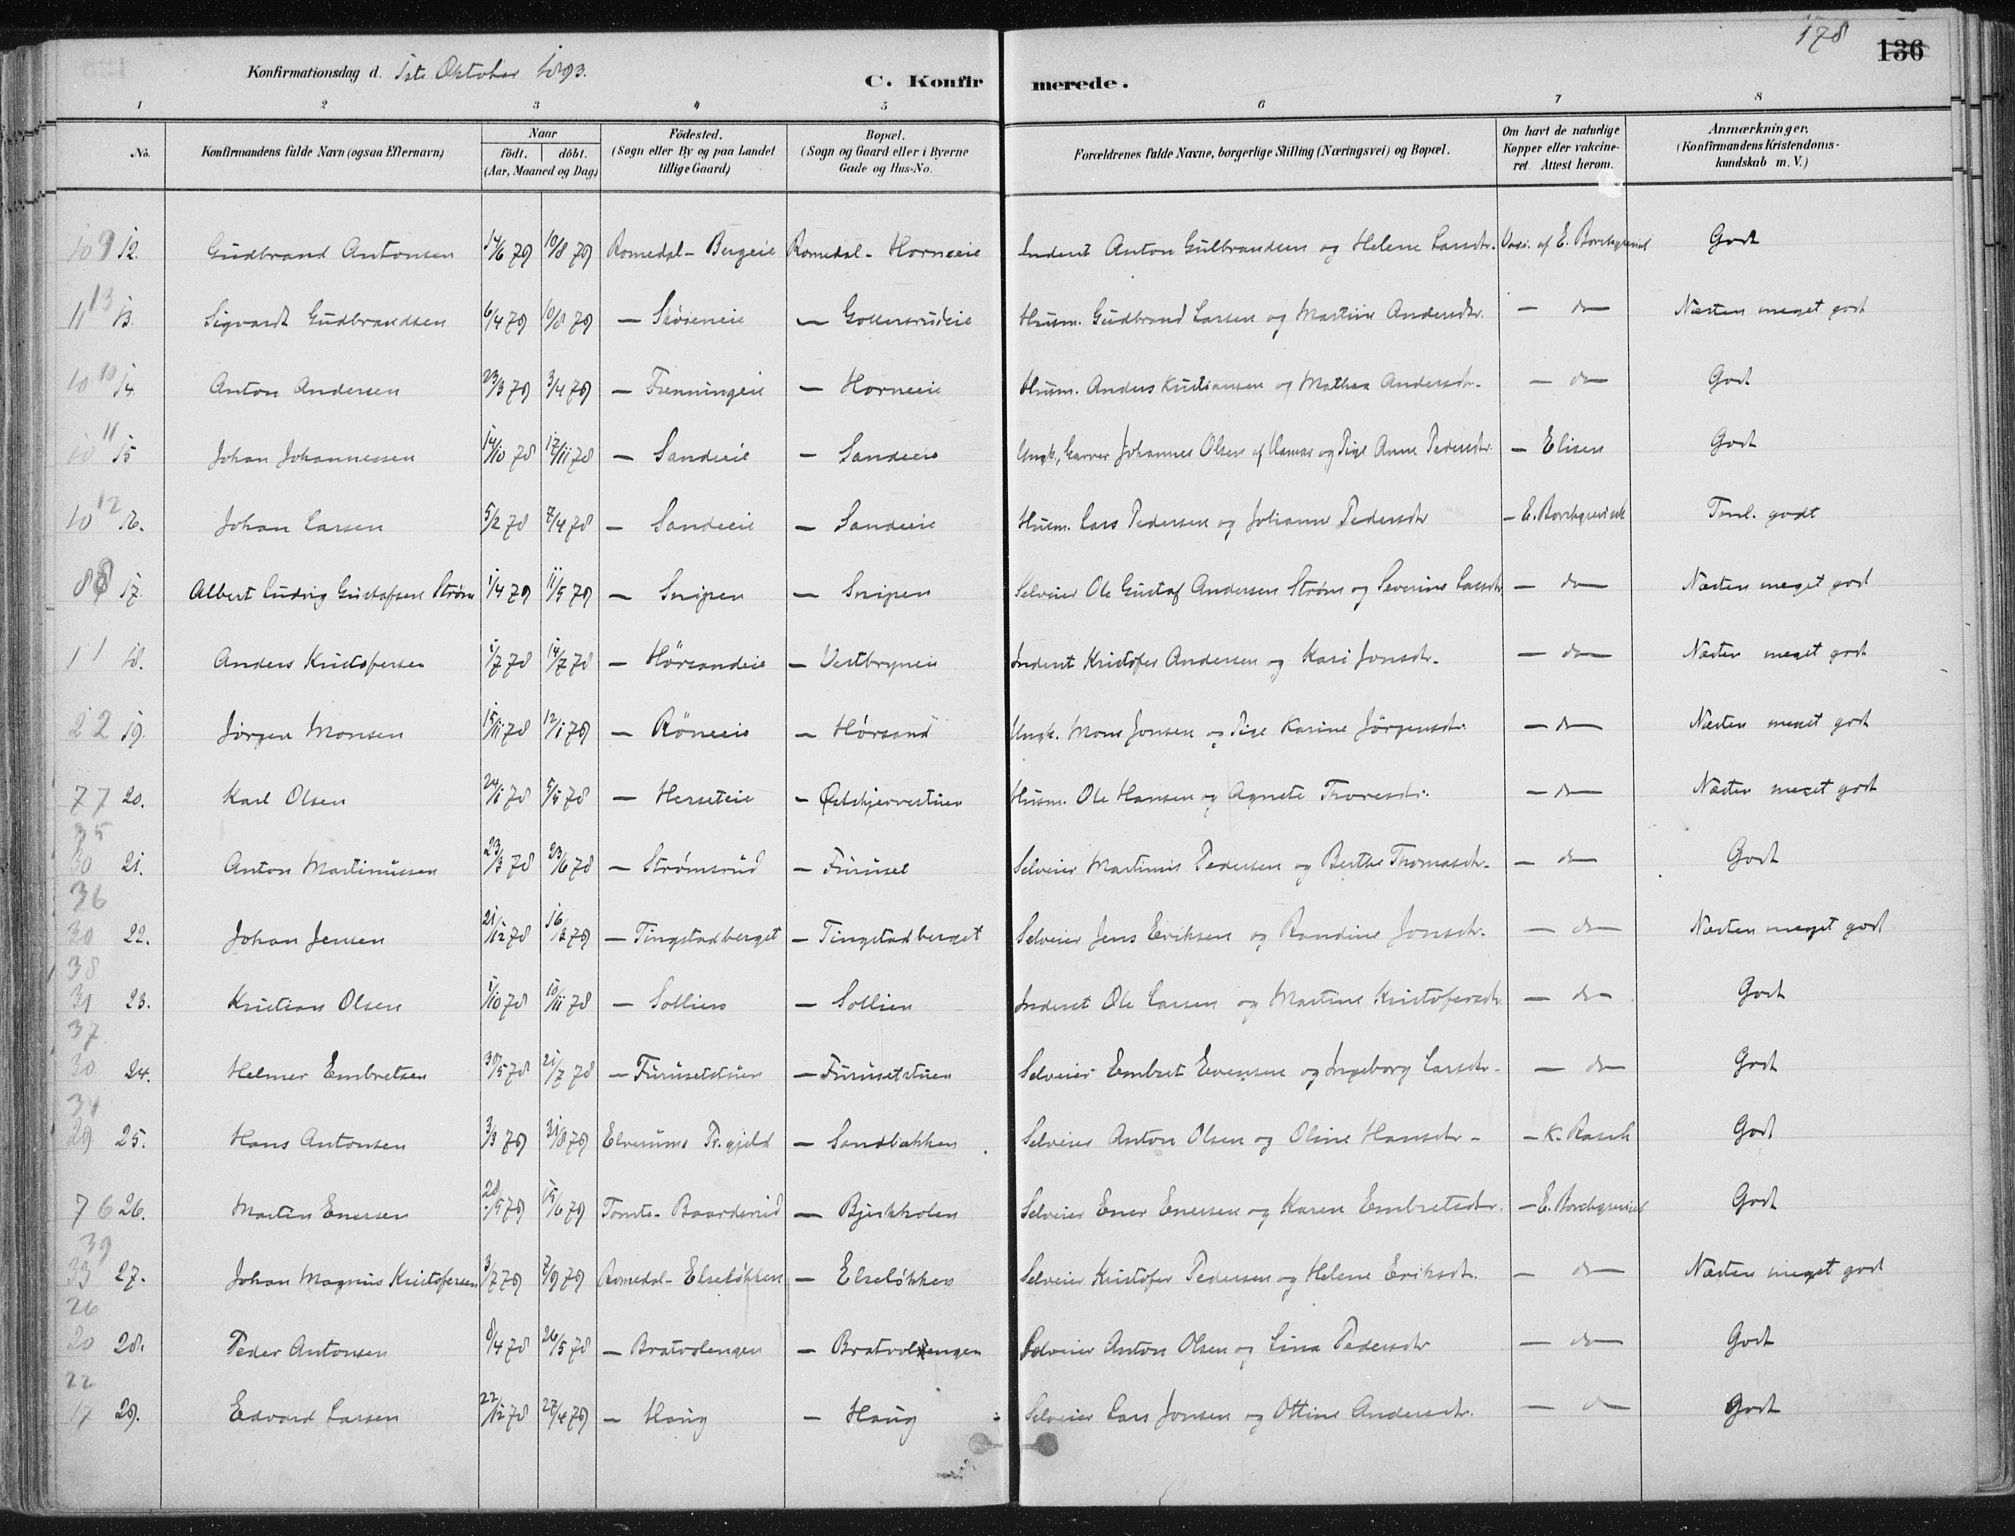 178
136
Konfirmationsdag d. 1ste Oktober 1893.
C. Konfirmerede.
1 2 3 4 5 6 7 8
No. Konfirmandens fulde Navn (ogsaa Efternavn) Naar født. døbt. (Aar, Maaned og Dag) Födested. (Sogn eller By og paa Landet tillige Gaard) Bopæl. (Sogn og Gaard eller i Byerne Gade og Hus-No. Forældrenes fulde Navne, borgerlige Stilling (Næringsvei) og Bopæl. Om havt de naturlige Kopper eller vakcineret Attest herom. Anmærkninger. (Konfirmandens Kristendomskundskab m. V.)
12. Gudbrand Antonsen 14/6 79 10/8 79 Romedal - Bergeie Romedal - Horneeie Inderst Anton Gulbrandsen og Helene Larsdtr. Vacc. af E. Borchgrevink Godt
13. Sigvardt Gudbrandsen 6/4 79 10/8 79 — Skøieneie — Gollersrudeie Husm. Gudbrand Larsen og Martine Andersdtr. — do — Næsten meget godt
14. Anton Andersen 23/3 79 3/4 79 — Frenningeie — Horneeie Husm. Anders Kristiansen og Mathea Andersdtr. — do — Godt
15. Johan Johannessen 14/10 78 17/11 78 — Sandeeie — Sandeeie Ungk., Garver Johannes Olsen af Hamar og Pige Anne Pedersdtr. — Elisen Godt
16. Johan Larsen 5/2 78 7/4 78 — Sandeeie — Sandeeie Husm. Lars Pedersen og Johanne Pedersdtr — E. Borchgrevink Teml. godt
17. Albert Ludvig Gustafsen Strøm 1/4 79 11/5 79 — Snipen — Snipen Selveier Ole Gustaf Andersen Strøm og Severine Larsdtr — do — Næsten meget godt
18. Anders Kristofersen 1/7 78 14/7 78 — Hörsandeie — Vestbryneie Inderst Kristofer Andersen og Kari Jonsdtr. — do — Næsten meget godt
19. Jörgen Monsen 15/11 78 12/1 79 — Röneeie — Hörsand Ungk. Mons Jonsen og Pige Karine Jörgensdtr. — do — Næsten meget godt
20. Karl Olsen 24/1 78 5/5 78 — Herseteie — Østskjerverstuen Husm. Ole Hansen og Agnete Thoresdtr. — do — Næsten meget godt
21. Anton Martinussen 23/3 78 23/6 78 — Strømsrud — Furuset Selveier Martinus Pedersen og Berthe Thomasdtr. — do — Godt
22. Johan Jensen 21/12 78 16/2 79 — Tingstadberget — Tingstadberget Selveier Jens Eriksen og Randine Jonsdtr. — do — Næsten meget godt
23. Kristian Olsen 1/10 78 10/11 78 — Sollien — Sollien Inderst Ole Larsen og Martine Kristofersdtr — do — Godt
24. Helmer Embretsen 30/5 78 21/7 78 — Furusetstuen — Furusetstuen Selveier Embret Evensen og Ingeborg Larsdtr. — do — Godt
25. Hans Antonsen 3/3 79 31/8 79 Elverums Pr.gjeld — Sandbakken Selveier Anton Olsen og Oline Hansdtr. — K. Rasch Godt
26. Martin Enersen 28/5 79 15/6 79 Tomte - Baarderud — Bjerkholen Selveier Ener Enersen og Karen Embretsdtr. — E. Borchgrevink Godt
27. Johan Magnus Kristofersen 3/7 79 7/9 79 Romedal - Elseløkken — Elseløkken Selveier Kristofer Pedersen og Helene Eriksdtr. — do — Næsten meget godt
28. Peder Antonsen 8/4 78 26/5 78 — Bratvolengen — Bratvolengen Selveier Anton Olsen og Lina Pedersdtr — do — Godt
29. Edvard Larsen 22/12 78 27/4 79 — Haug — Haug Selveier Lars Jonsen og Ottine Andersdtr. — do — Godt